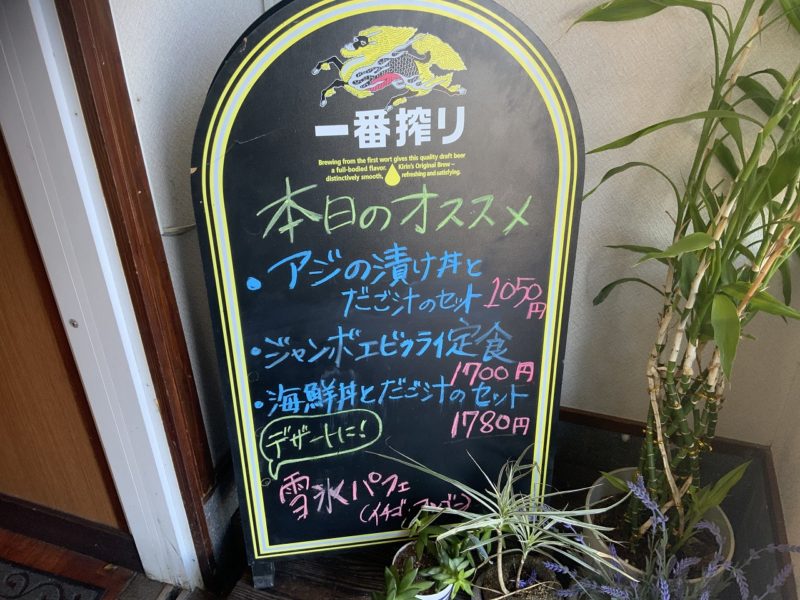 一番搾り
Brewing from the first wort gives this quality draft beer
a full-bodied flavor. Kirin's Original Brew –
distinctively smooth, refreshing and satisfying.
本日のオススメ
・アジの漬け丼と
だご汁のセット 1050円
・ジャンボエビフライ定食
1700円
・海鮮丼とだご汁のセット
1780円
デザートに!
雪氷パフェ
(イチゴ・マンゴー)